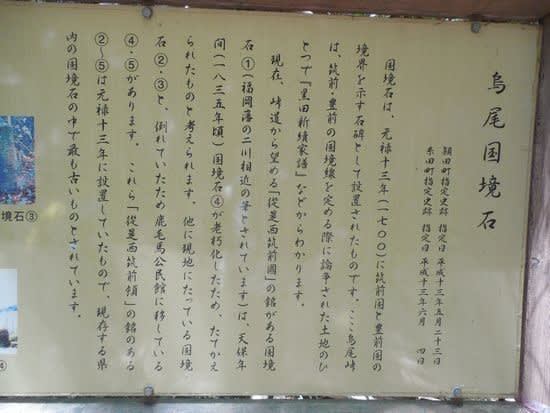 烏尾国境石
頴田町指定史跡 指定日 平成十三年五月二十三日
糸田町指定史跡 指定日 平成十三年六月 四日
国境石は、元禄十三年(一七〇〇)に筑前国と豊前国の
境界を示す石碑として設置されたものです。ここ烏尾峠
は、筑前・豊前の国境線を定める際に論争された土地のひ
とつで『黒田新続家譜』などからわかります。
現在、峠道から望める「従是西筑前國」の銘がある国境
石①(福岡藩の二川相近の筆とされています)は、天保年
間(一八三五年頃)国境石④が老朽化したため、たてかえ
られたものと考えられます。他に現地にたっている国境
石②・③と、倒れていたため鹿毛馬公民館に移している
④・⑤があります。これら「従是西筑前領」の銘のある
②〜⑤は元禄十三年に設置していたもので、現存する県
内の国境石の中で最も古いものとされています。
境石③
④